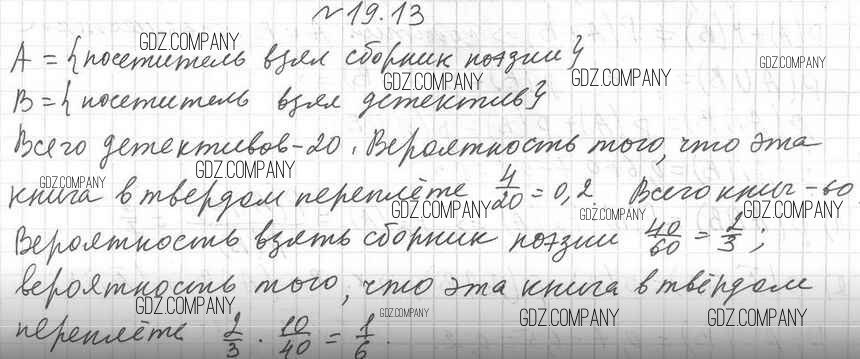 №19.13
A = {посетитель взял сборник поэзии}
B = {посетитель взял детектив}
Всего детективов-20. Вероятность того, что эта
книга в твердом переплёте 4/20 = 0,2. Всего книг - 60.
Вероятность взять сборник поэзии 40/60 = 2/3;
вероятность того, что эта книга в твёрдом
переплёте 2/3 · 10/40 = 1/6.
GDZ.COMPANY
GDZ.COMPANY
GDZ.COMPANY
GDZ.COMPANY
GDZ.COMPANY
GDZ.COMPANY
GDZ.COMPANY
GDZ.COMPANY
GDZ.COMPANY
GDZ.COMPANY
GDZ.COMPANY
GDZ.COMPANY
GDZ.COMPANY